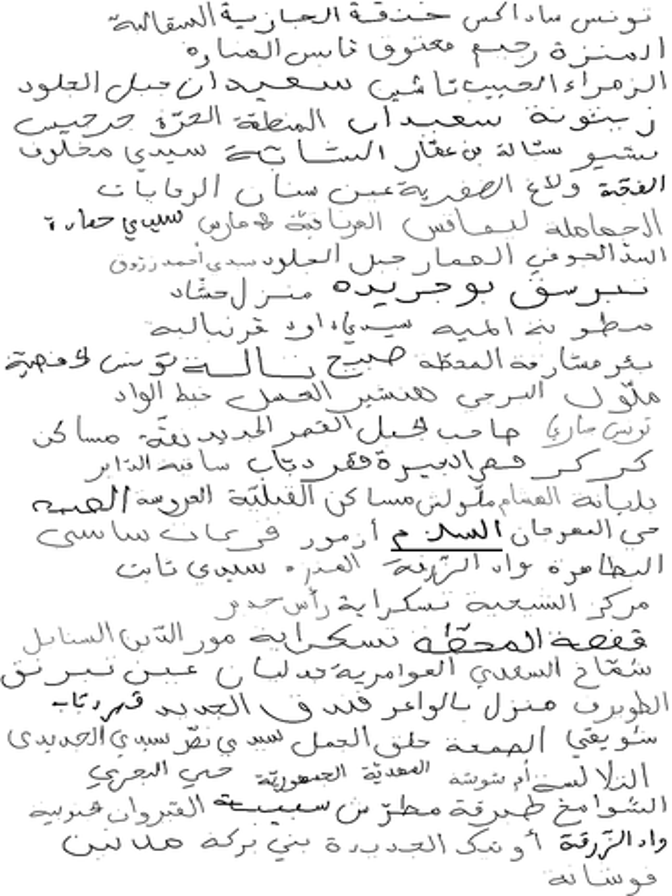 تونس ساداكس خندقة الحجازية السقالبة
المنزه رجيم معتوق قابس المنارة
الزهراء الحبيب تاشي سعيدان جبل الجلود
زيتونة سعيدان المنطقة الحرّة جرجيس
بشير ستالة بن عقار الشابة سيدي مخلوف
الفجة ولاغ الصفرية عين سنان الرقايات
الحمامله ليماقس العربانية المارس سيدي حمادة
السد الجوفي العمار جبل الجلود سيدي أحمد زروق
تبرسق بوجريده منزل حشاد
سيدي داود قرنبالية
بئر مشارقة المحطّة صبيح تالة تونس القصبة
ملّول البرجي هنشير العسل خيط الواد
تونس صاحب الجبل القصر الجديد نفّة مساكن
كركر قصر البحيرة قصر دباب ساقية الدائر
بليانة العصام ملّولش مساكن القبليّة العروسة
حي المهرجان السلام أزمور فريحات ساسي
الطاهرة واد الزّرقة المنزه سيدي ثابت
مركز الشيحية تسكراية رأس جدير
قفصة المحطّة تسكراية مور الدّين السنابل
شمّاخ السعدي العوامرية جدليان عين تبرنق
الطويرف منزل بالواعر فندق الجديد قصر دباب
شويقي الجمعة حلق الجمل سيدي نصر سيدي الجديدي
التلالسة أم شوشة المهدية الجمهوريّة حي البحري
الشوامخ طبرقة مطرّش سبيبة القيروان
واد الزّرقة أوتيك الجديدة بني بركة مدنين
فوشانة